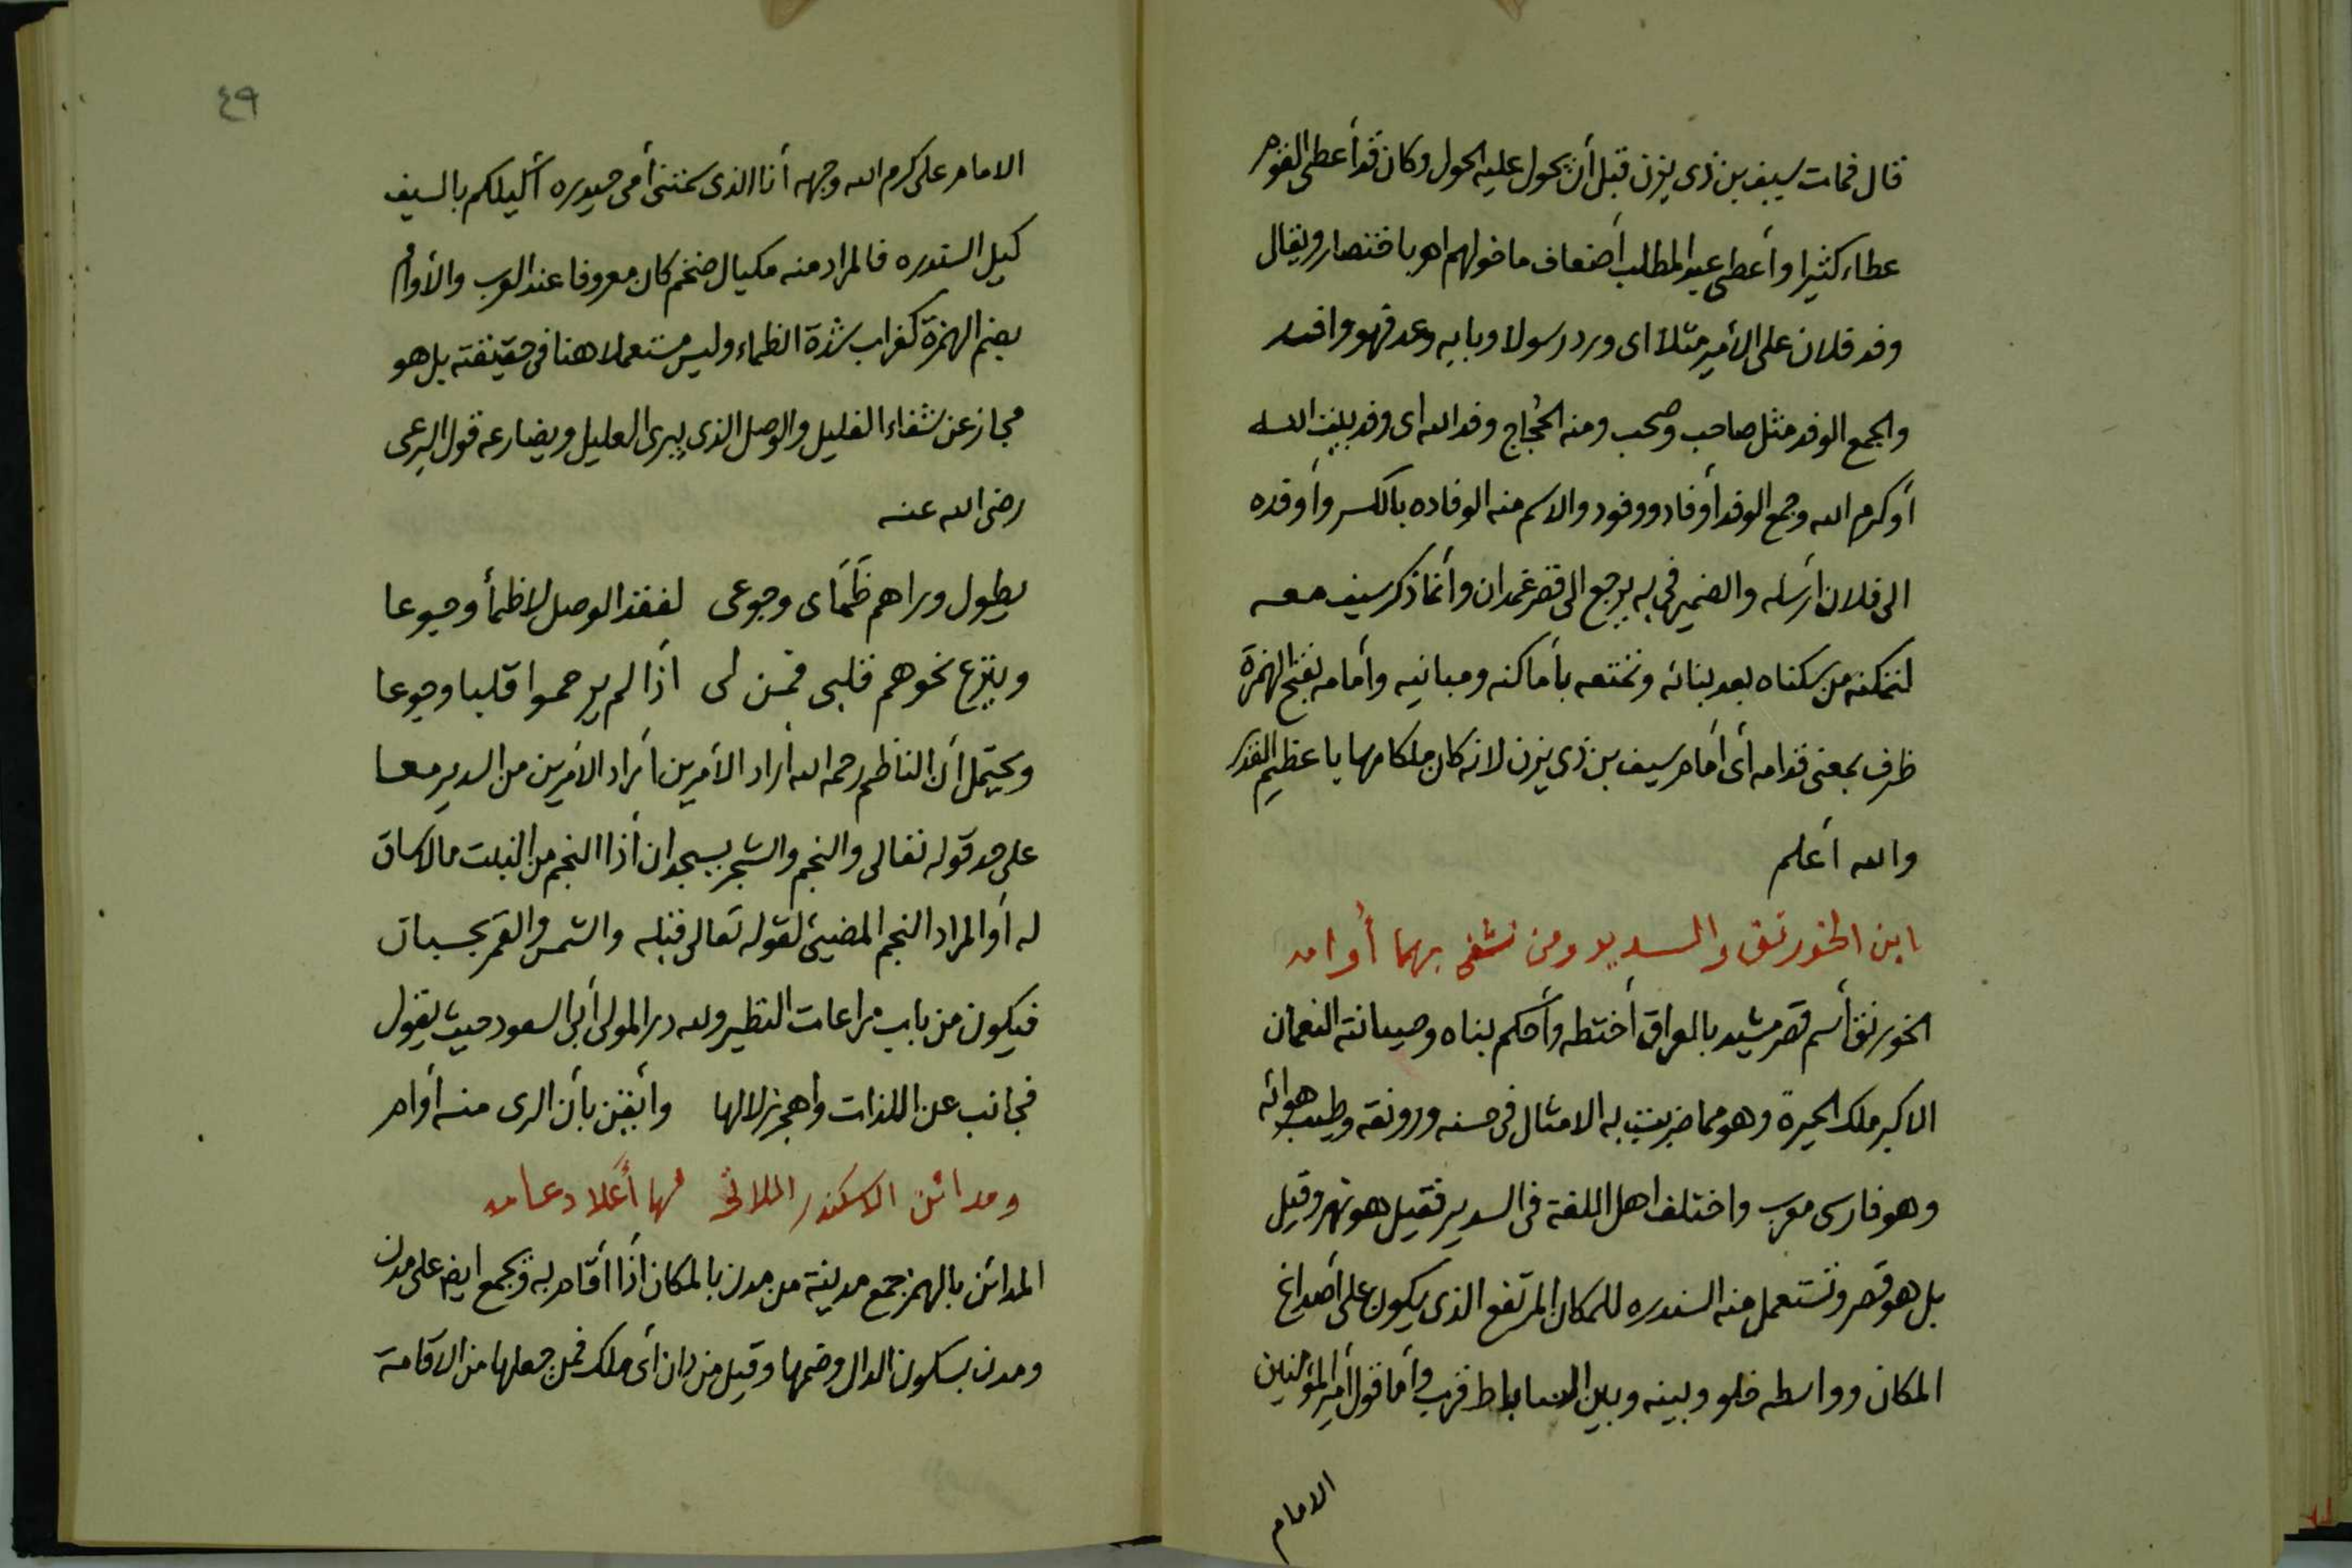 قال فمات سيف بن ذى يزن قبل أن يحول عليه الحول وكان قد أعطى القوم
عطاء كثيرا وأعطى عبد المطلب أضعاف ما خولهم اهـ باختصار ويقال
وفد فلان على الأمير مثلا اى ورد رسولا وبابه وعد فهو وافد
والجمع الوفد مثل صاحب وصحب ومنه الحُجاج وفد الله اى وفد بيت الله
أو كرم الله وجمع الوفد أوفاد ووفود والاسم منه الوفاده بالكسر وأوفده
الى فلان أرسله والضمير فى به يرجع الى قصر غمدان وأنما ذكر سيف معه
لتمكنه من سكناه بعد بنائه وتمتعه بأماكنه ومبانيه وأمامه بفتح الهمزة
ظرف بمعنى قدامه أى أمام سيف بن ذى يزن لانه كان ملكا مهابا عظيم القدر
والله أعلم
اين الخورنق والسدير ومن شفى بهما أُوامه
الخورنق أسم قصر مشيد بالعراق أختطه وأحكم بناه وصيانته النعمان
الاكبر ملك الحيرة وهو مما ضربت به الامثال فى حسنه ورونقه وطيب هوائه
وهو فارسى معرب واختلف اهل اللغة فى السدير فقيل هو نهر وقيل
بل هو قصر وتستعمل منه السندره للمكان المرتفع الذى يكون على أصداغ
المكان وواسطه خلو وبينه وبين الساباط قرب وأما قول أمير المؤمنين
الامام
٤٩
الامام على كرم الله وجهه أنا الذى سمتنى أمى حيدره أكيلكم بالسيف
كيل السندره فالمراد منه مكيال ضخم كان معروفا عند العرب والأوام
بضم الهمزة كغراب شدة الظماء وليس مستعملا هنا فى حقيقته بل هو
مجاز عن شفاء الغليل والوصل الذى يبرى العليل ويضارعه قول البرعى
رضى الله عنه
يطول وراهم ظَمَاى وجوعى لفقد الوصل لا ظمأ وجوعا
وينزع نحوهم قلبى فمن لى أذا لم يرحموا قلبا وجوعا
ويحتمل أن الناظم رحمه الله أراد الأمرين أراد الأمرين من السدير معا
على حد قوله تعالى والنجم والشجر يسجدان أذا النجم من النبت مالا ساق
له أو المراد النجم المضيئ لقوله تعالى قبله والشمس والقمر بحسبان
فيكون من باب مراعات النظير ولله در المولى أبى السعود حيث يقول
فجانب عن اللذات وأهجر زلالها وأيقن بأن الرى منه أوام
ومدائن الاسكندر اللاتى لها أَعلا دعامه
المدائن بالهمز جمع مدينة من مدن بالمكان أذا أقام به ويجمع ايضا على مدن
ومدن بسكون الدال وضمها وقيل من دان أى ملك فمن جعلها من الاقامة